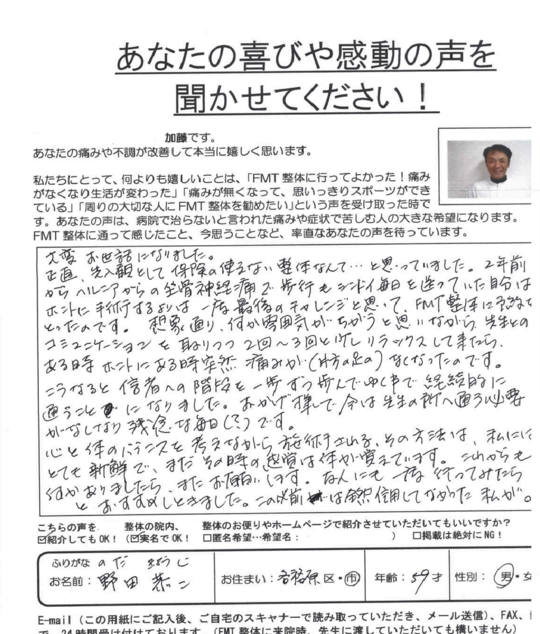 あなたの喜びや感動の声を
聞かせてください！
加藤です。
あなたの痛みや不調が改善して本当に嬉しく思います。
私たちにとって、何よりも嬉しいことは、「FMT整体に行ってよかった！痛み
がなくなり生活が変わった」「痛みが無くなって、思いっきりスポーツができ
ている」「周りの大切な人にFMT整体を勧めたい」という声を受け取った時で
す。あなたの声は、病院で治らないと言われた痛みや症状で苦しむ人の大きな希望になります。
FMT整体に通って感じたこと、今思うことなど、率直なあなたの声を待っています。
大変お世話になりました。
正直、先入観として保険の使えない整体なんて…と思っていました。2年前
からヘルニアからの坐骨神経痛で歩行もシンドイ毎日を送っていた自分は
ホントに手術するよりは一度最後のチャレンジと思って、FMT整体に予約を
とったのです。想象通り、何か雰囲気がちがうと思いながら先生との
コミュニケーションを取りつつ2回〜3回と少しリラックスして来たら、
ある時ホントにある時突然痛みが(片方の足の)なくなったのです。
こうなると信者への階段を一歩ずつ歩んでゆく事で継続的に
通うことになりました。おかげ様で今は先生の所へ通う必要
がなくなり残念な毎日(?)です。
心と体のバランスを考えながら施術される、その方法は、私には
とても新鮮で、まだその時の感覚は体が覚えています。これからも
何かありましたら、またお願いします。なんにも一度行ってみたら
とおすすめしときました。この以前は全然信用してなかった私が。
こちらの声を 整体の院内、 整体のお便りやホームページで紹介させていただいてもいいですか？
☑紹介してもOK！ ☑実名でOK！ □匿名希望…希望名：　　　　） □掲載は絶対にNG！
ふりがな のだ きょうじ
お名前：野田恭二 お住まい：各務原区・市 年齢：59才 性別：男・女
E-mail（この用紙にご記入後、ご自宅のスキャナーで読み取っていただき、メール送信）、FAX、
で、24時間受け付ております。（FMT整体に来院時、先生に渡していただいても構いません）